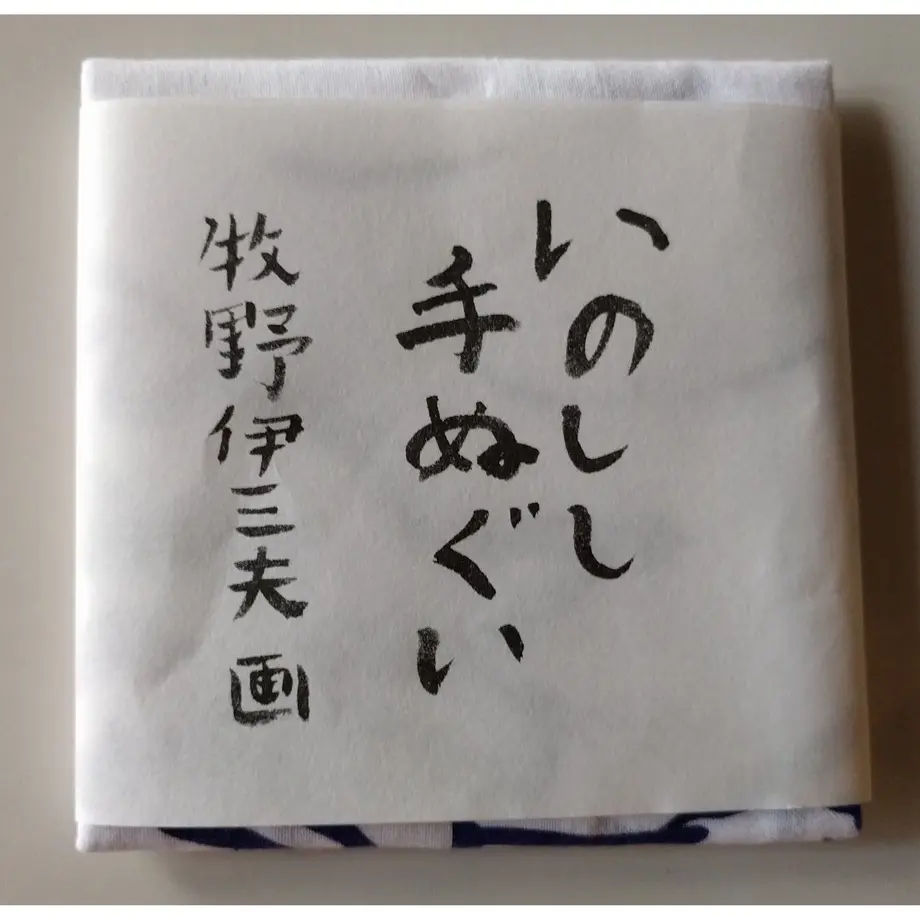 いのしし
手ぬぐい
牧野伊三夫 画